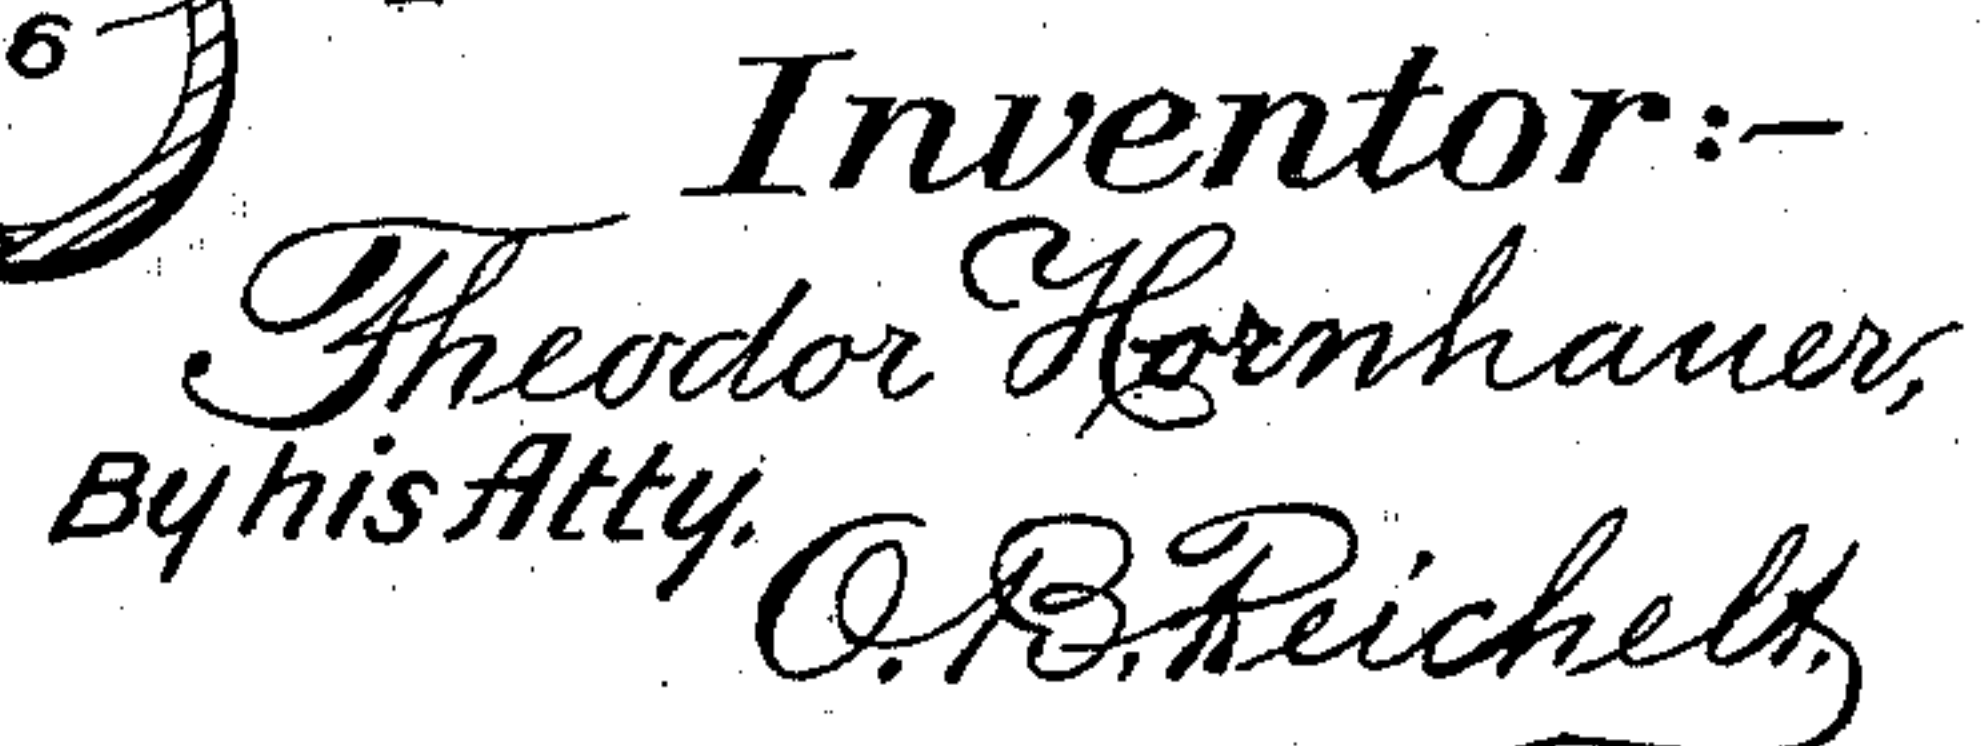 6
Inventor:-
Theodor Hornhauer,
By his Atty.
O. B. Reichelt.